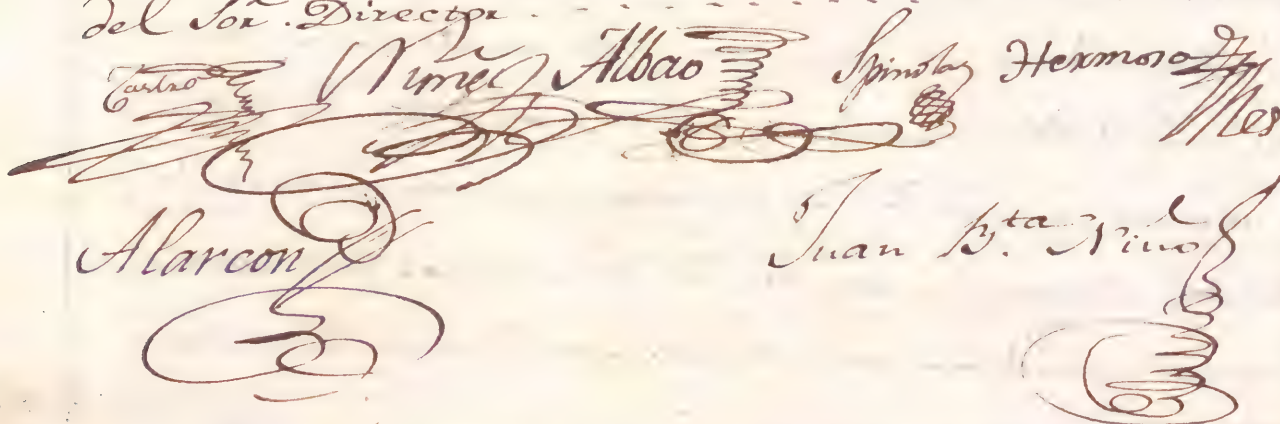 del Sor. Director
Castro Nuñez Albao Spinola Hermoso
Alarcon Juan B.ta Niño